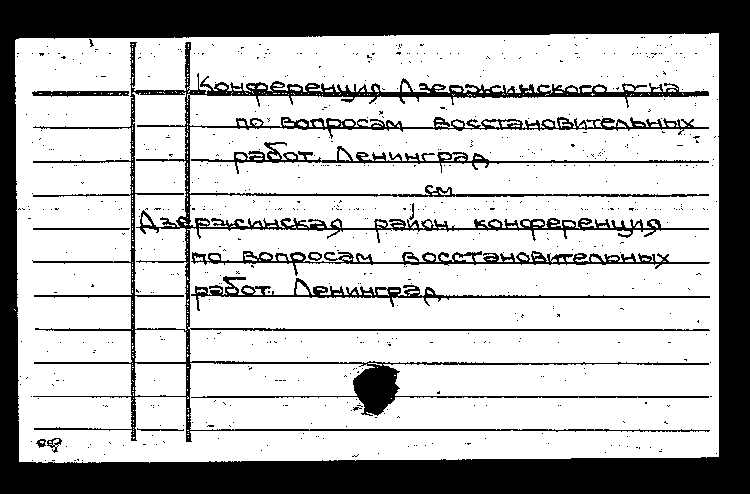 Конференция Дзержинского р-на
по вопросам восстановительных
работ. Ленинград
см
Дзержинская район. конференция
по вопросам восстановительных
работ. Ленинград.